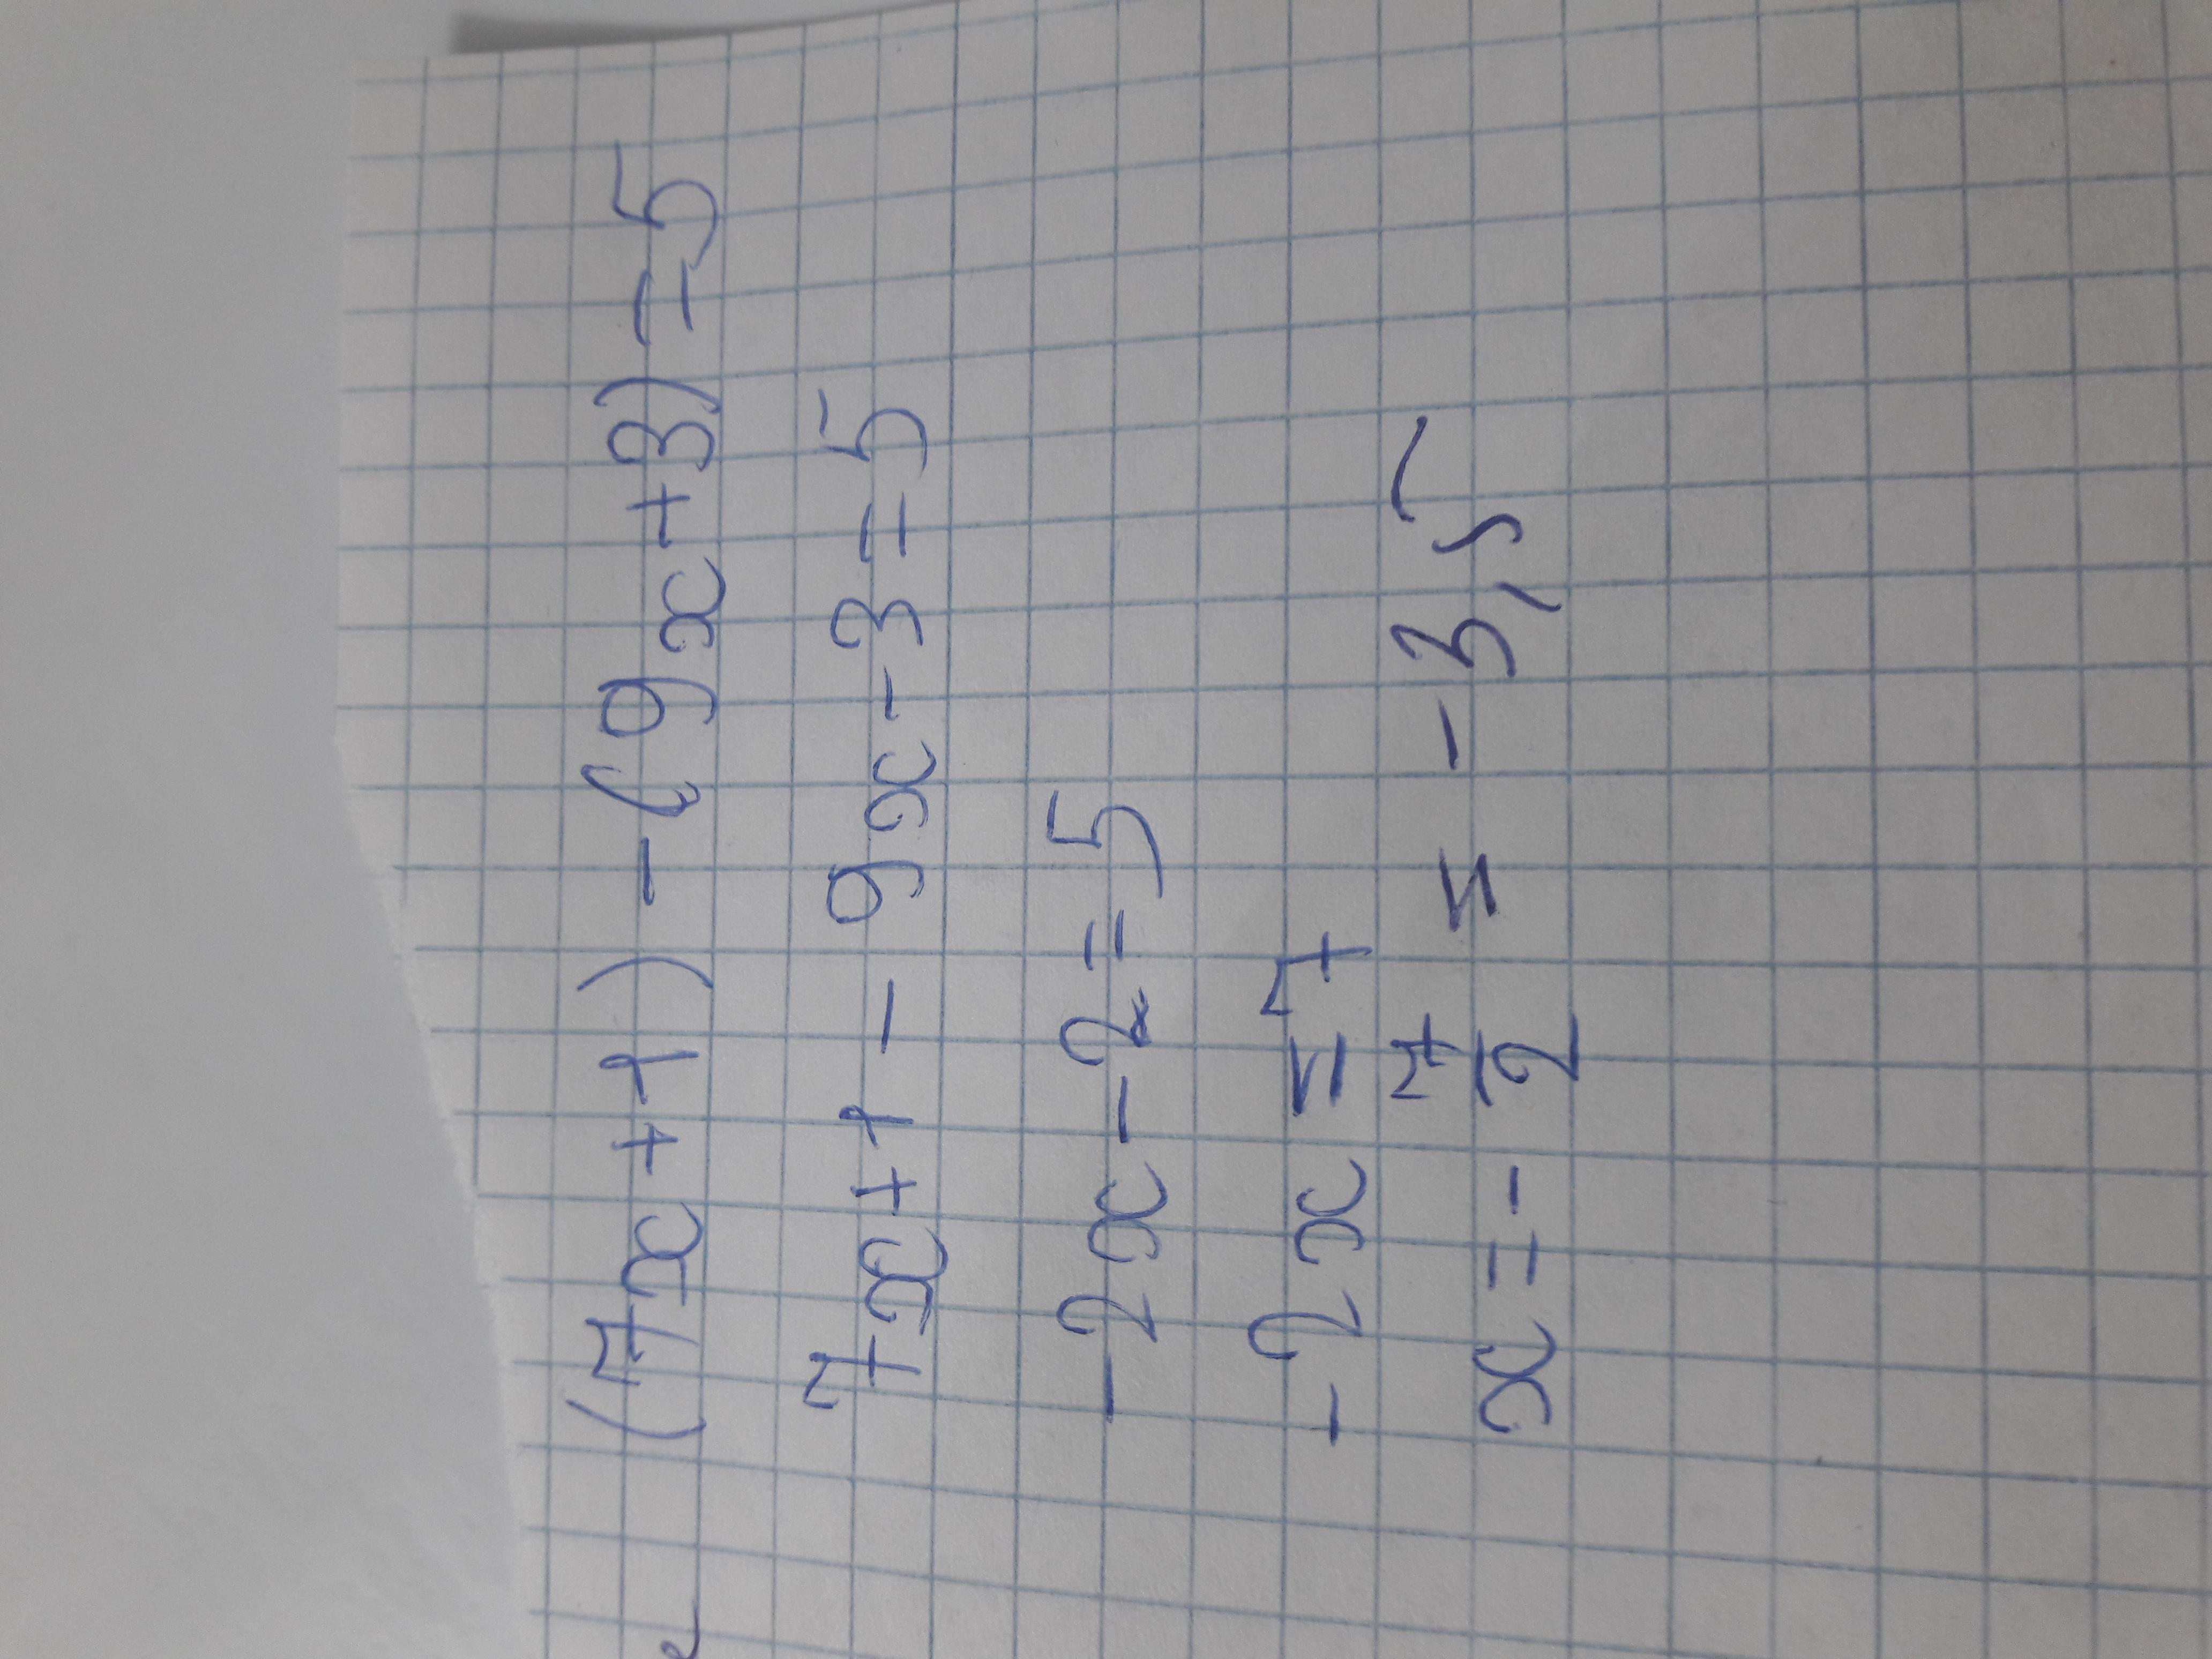 (7x+1)-(9x+3)=5
7x+1-9x-3=5
-2x-2=5
-2x=7
x=-7/2=-3,5